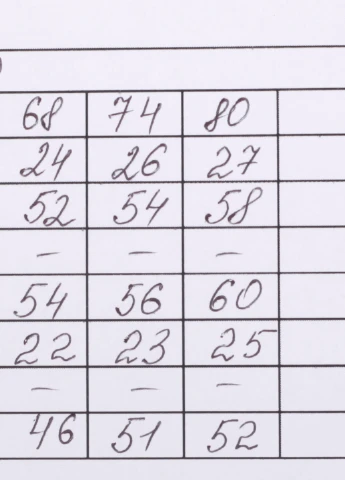 68 74 80
24 26 27
52 54 58
— — —
54 56 60
22 23 25
— — —
46 51 52